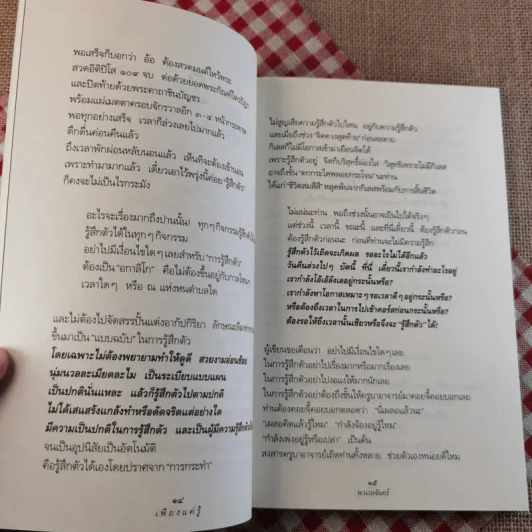 พอเสร็จก็บอกว่า อ้อ ต้องสวดมนต์ไหว้พระ
สวดอิติปิโส ๑๐๙ จบ ต่อด้วยยอดพระกัณฑ์ไตรปิฎก
และปิดท้ายด้วยพระคาถาชินบัญชร
พร้อมแผ่เมตตาครอบจักรวาลอีก ๓-๔ หน้ากระดาษ
พอทุกอย่างเสร็จ เวลาก็ล่วงเลยไปมากแล้ว
ดึกดื่นค่อนคืนแล้ว
ถึงเวลาพักผ่อนหลับนอนแล้ว เห็นทีจะต้องเข้านอน
เพราะทำมามากแล้ว เดี๋ยวเอาไว้พรุ่งนี้ค่อย "รู้สึกตัว"
ก็คงจะไม่เป็นไรกระมัง
อะไรจะเรื่องมากถึงปานนั้น! ทุกๆกิจกรรมรู้สึกตัวได้
รู้สึกตัวได้ในทุกๆกิจกรรม
อย่าไปมีเงื่อนไขใดๆเลยสำหรับ "การรู้สึกตัว"
ต้องเป็น "อกาลิโก" คือไม่ต้องขึ้นอยู่กับกาลไหนๆ
เวลาใดๆ หรือ ณ แห่งหนตำบลใด
และไม่ต้องไปจัดสรรปั้นแต่งอากัปกิริยา ลักษณะลีลาท่าทาง
ขึ้นมาเป็น "แบบฉบับ" ในการรู้สึกตัว
โดยเฉพาะไม่ต้องพยายามทำให้ดูดี สวยงามอ่อนช้อย
นุ่มนวลละเมียดละไม เป็นระเบียบแบบแผน
เป็นปกตินั่นแหละ แล้วก็รู้สึกตัวไปตามปกติ
ไม่ได้เสแสร้งแกล้งทำหรือดัดจริตแต่อย่างใด
มีความเป็นปกติในการรู้สึกตัว และเป็นผู้มีความรู้สึกตัว
จนเป็นอุปนิสัยเป็นอัตโนมัติ
คือรู้สึกตัวได้เองโดยปราศจาก "การกระทำ"
๑๔
เพียงแค่รู้
ไม่สูญเสียความรู้สึกตัวไปไหน อยู่กับความรู้สึกตัว
และเมื่อถึงช่วง "จิตดวงสุดท้าย" ก่อนจะตาย
กิเลสก็ไม่มีโอกาสเข้ามาเยือนจิตได้
เพราะรู้สึกตัวอยู่ จิตก็บริสุทธิ์ผ่องใส วิสุทธิเพราะไม่มีกิเลส
อาจถึงขั้น "ตกกระไดพลอยกระโจน" นะท่าน
ได้แก่ "ชีวิตสมสีสี" หลุดพ้นจากกิเลสพร้อมกับการสิ้นชีวิต
ไม่แน่นะท่าน พอถึงช่วงนั้นอาจเป็นไปได้จริงๆ
แต่ช่วงนี้ เวลานี้ ขณะนี้ และที่นี่เดี๋ยวนี้ ต้องรู้สึกตัวก่อน
ต้องรู้สึกตัวก่อนนะ ก่อนที่ท่านจะไม่มีความรู้สึก
รู้สึกตัวไว้เดี๋ยวจะเกิดผล รออะไรไม่ได้อีกแล้ว
วันคืนล่วงไปๆ บัดนี้ ที่นี่ เดี๋ยวนี้เรากำลังทำอะไรอยู่
เรากำลังโอ้เอ้อืดเลอยู่กระนั้นหรือ?
เรากำลังหาโอกาสเหมาะๆรอเวลาดีๆอยู่กระนั้นหรือ?
หรือต้องรอถึงเวลาในการไปเข้าคอร์สก่อนกระนั้นหรือ?
ต้องรอให้ถึงเวลานั้นเชียวหรือจึงจะ "รู้สึกตัว" ได้!
ผู้เขียนขอเตือนว่า อย่าไปมีเงื่อนไขใดๆเลย
ในการรู้สึกตัวอย่าไปเรื่องมากหรือมากเรื่องเลย
ในการรู้สึกตัวอย่าไปงอแงให้มากนักเลย
ในการรู้สึกตัวอย่าต้องถึงขั้นให้ครูบาอาจารย์มาคอยจี้คอยบอกเลย
ท่านต้องคอยจี้คอยบอกตลอดว่า "นี่เผลอแล้วนะ"
"เผลอคิดแล้วรู้ไหม" "กำลังจ้องอยู่รู้ไหม"
"กำลังเพ่งอยู่รู้หรือเปล่า" เป็นต้น
สงสารครูบาอาจารย์เถิดท่านทั้งหลาย ช่วยตัวเองหน่อยดีไหม
๑๕
พ.นวลจันทร์